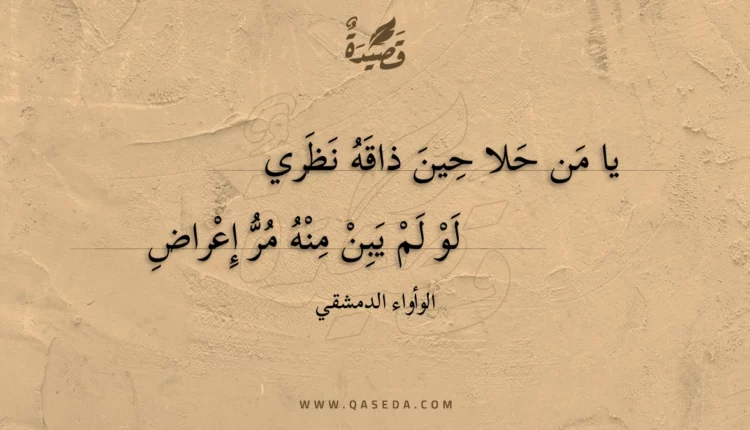 قَصِيدَةٌ
يا مَن حَلا حِينَ ذاقَهُ نَظَري
لَوْ لَمْ يَبِنْ مِنْهُ مُرُّ إِعْراضِ
الوأواء الدمشقي
WWW.QASEDA.COM